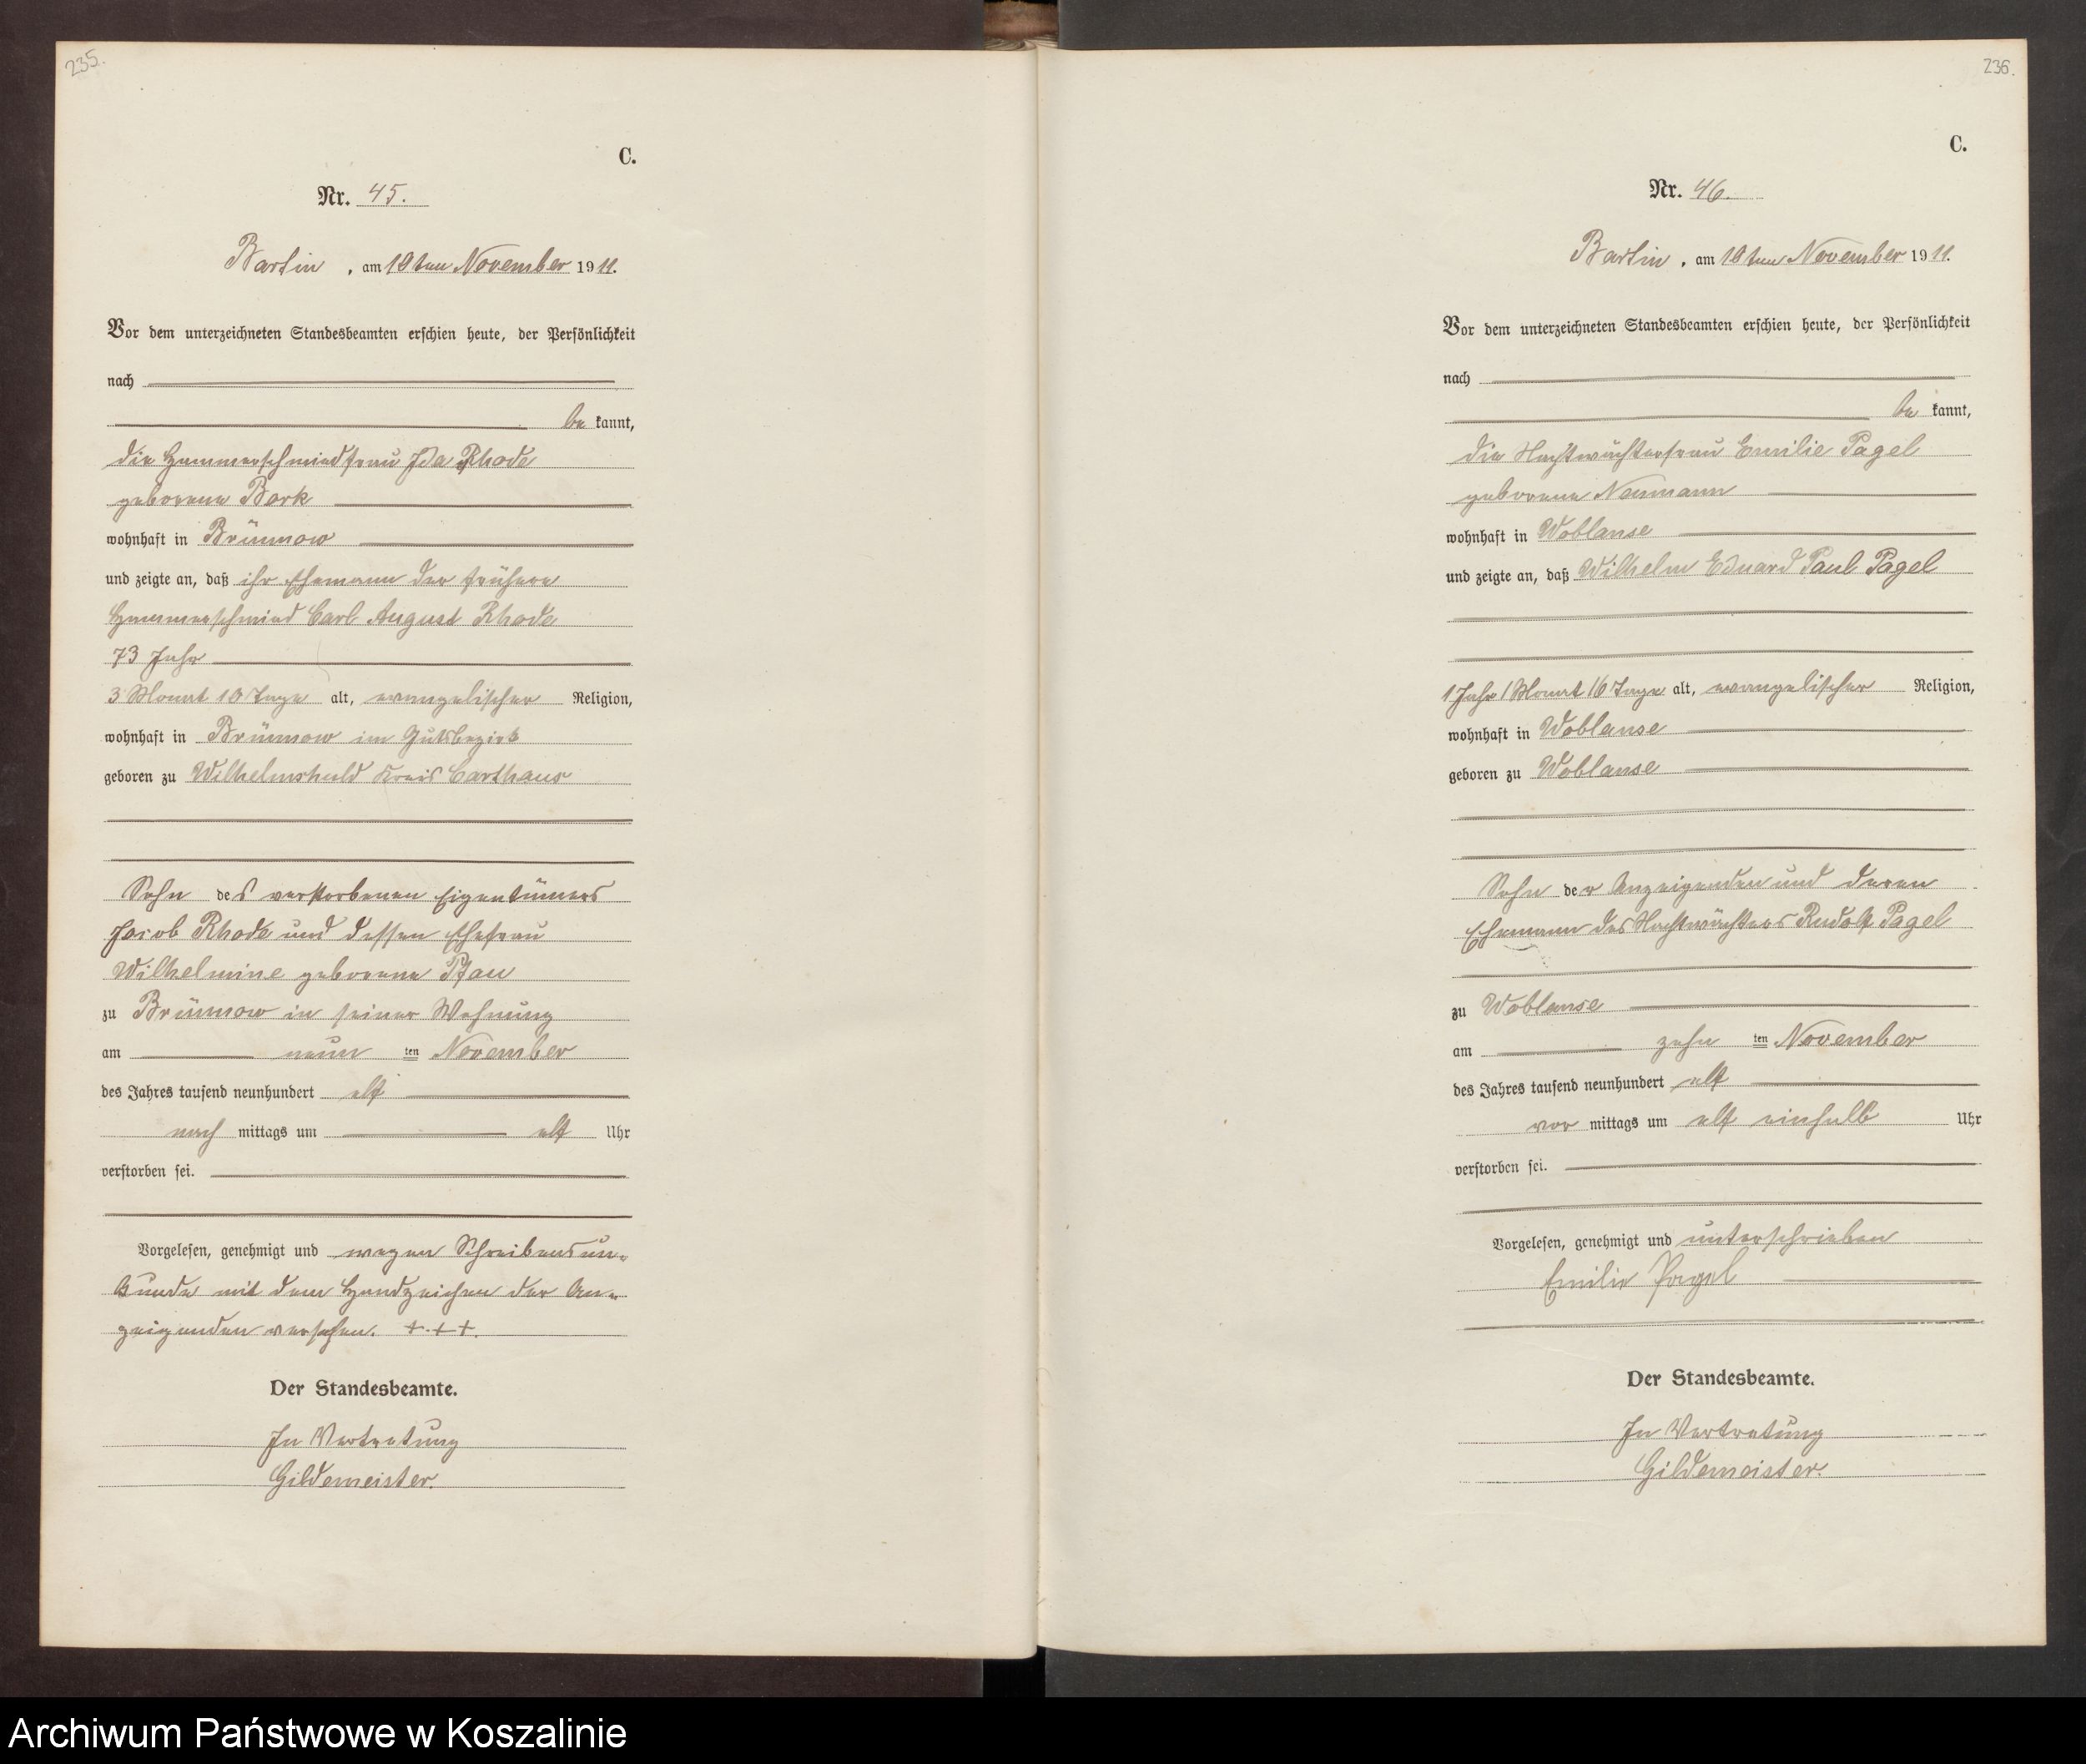 235.
C.
Nr. 45.
Bartin, am 10ten November 1911.
Vor dem unterzeichneten Standesbeamten erschien heute, der Persönlichkeit
nach
be kannt,
die Hammerschmiedfrau Ida Rhode
geborene Bork
wohnhaft in Brünnow
und zeigte an, daß ihr Ehemann der frühere
Hammerschmied Carl August Rhode
73 Jahr
3 Monat 10 Tage alt, evangelischer Religion,
wohnhaft in Brünnow im Gutsbezirk
geboren zu Wilhelmshuld Kreis Carthaus
Sohn des verstorbenen Eigentümers
Jacob Rhode und dessen Ehefrau
Wilhelmine geborene Pfau
zu Brünnow in seiner Wohnung
am neun ten November
des Jahres tausend neunhundert elf
nach mittags um elf Uhr
verstorben sei.
Vorgelesen, genehmigt und wegen Schreibensun-
kunde mit dem Handzeichen der An-
zeigenden versehen. +.++.
Der Standesbeamte.
In Vertretung
Gildemeister.
236.
C.
Nr. 46.
Bartin, am 10ten November 1911.
Vor dem unterzeichneten Standesbeamten erschien heute, der Persönlichkeit
nach
be kannt,
die Nachtwächterfrau Emilie Pagel
geborene Neumann
wohnhaft in Woblanse
und zeigte an, daß Wilhelm Eduard Paul Pagel
1 Jahr 1 Monat 16 Tage alt, evangelischer Religion,
wohnhaft in Woblanse
geboren zu Woblanse
Sohn der Anzeigenden und deren
Ehemann des Nachtwächters Rudolf Pagel
zu Woblanse
am zehn ten November
des Jahres tausend neunhundert elf
vor mittags um elf einhalb Uhr
verstorben sei.
Vorgelesen, genehmigt und unterschrieben
Emilie Pagel
Der Standesbeamte.
In Vertretung
Gildemeister.
Archiwum Państwowe w Koszalinie